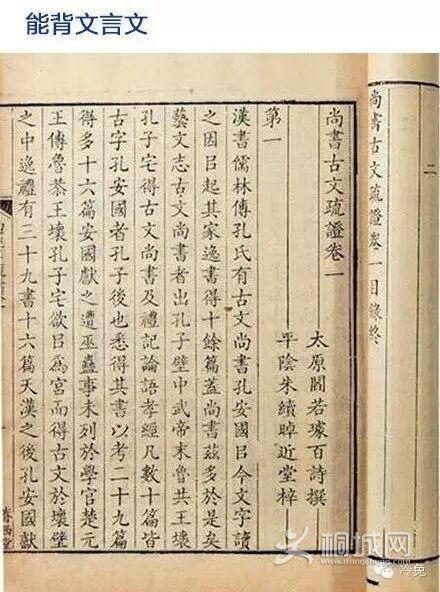 能背文言文
二
尚書古文疏證卷一目錄終
尚書古文疏證卷一
太原閻若璩百詩撰
平陰朱續晫近堂梓
第一
漢書儒林傳孔氏有古文尚書孔安國㠯今文字讀
之因㠯起其家逸書得十餘篇蓋尚書茲多於是矣
藝文志古文尚書者出孔子壁中武帝末魯共王壞
孔子宅得古文尚書及禮記論語孝經凡數十篇皆
古字孔安國者孔子後也悉得其書以考二十九篇
得多十六篇安國獻之遭巫蠱事未列於學官楚元
王傳魯恭王壞孔子宅欲㠯爲宮而得古文於壞壁
之中逸禮有三十九書十六篇天漢之後孔安國獻
桐城网
冷兔